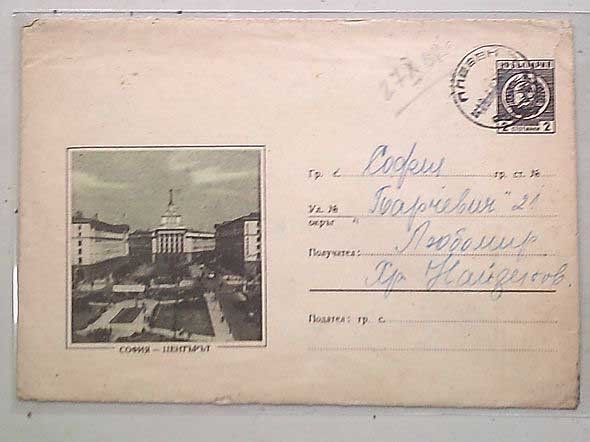 ПЛЕВЕН
НР БЪЛГАРИЯ
2 СТОТИНКИ 2
27 X
Гр. с. София гр. ст. №
Ул. № "Парчевич" 21
окръг
Получател: Любомир
Хр. Найденов.
Подател: гр. с.
СОФИЯ — ЦЕНТЪРЪТ